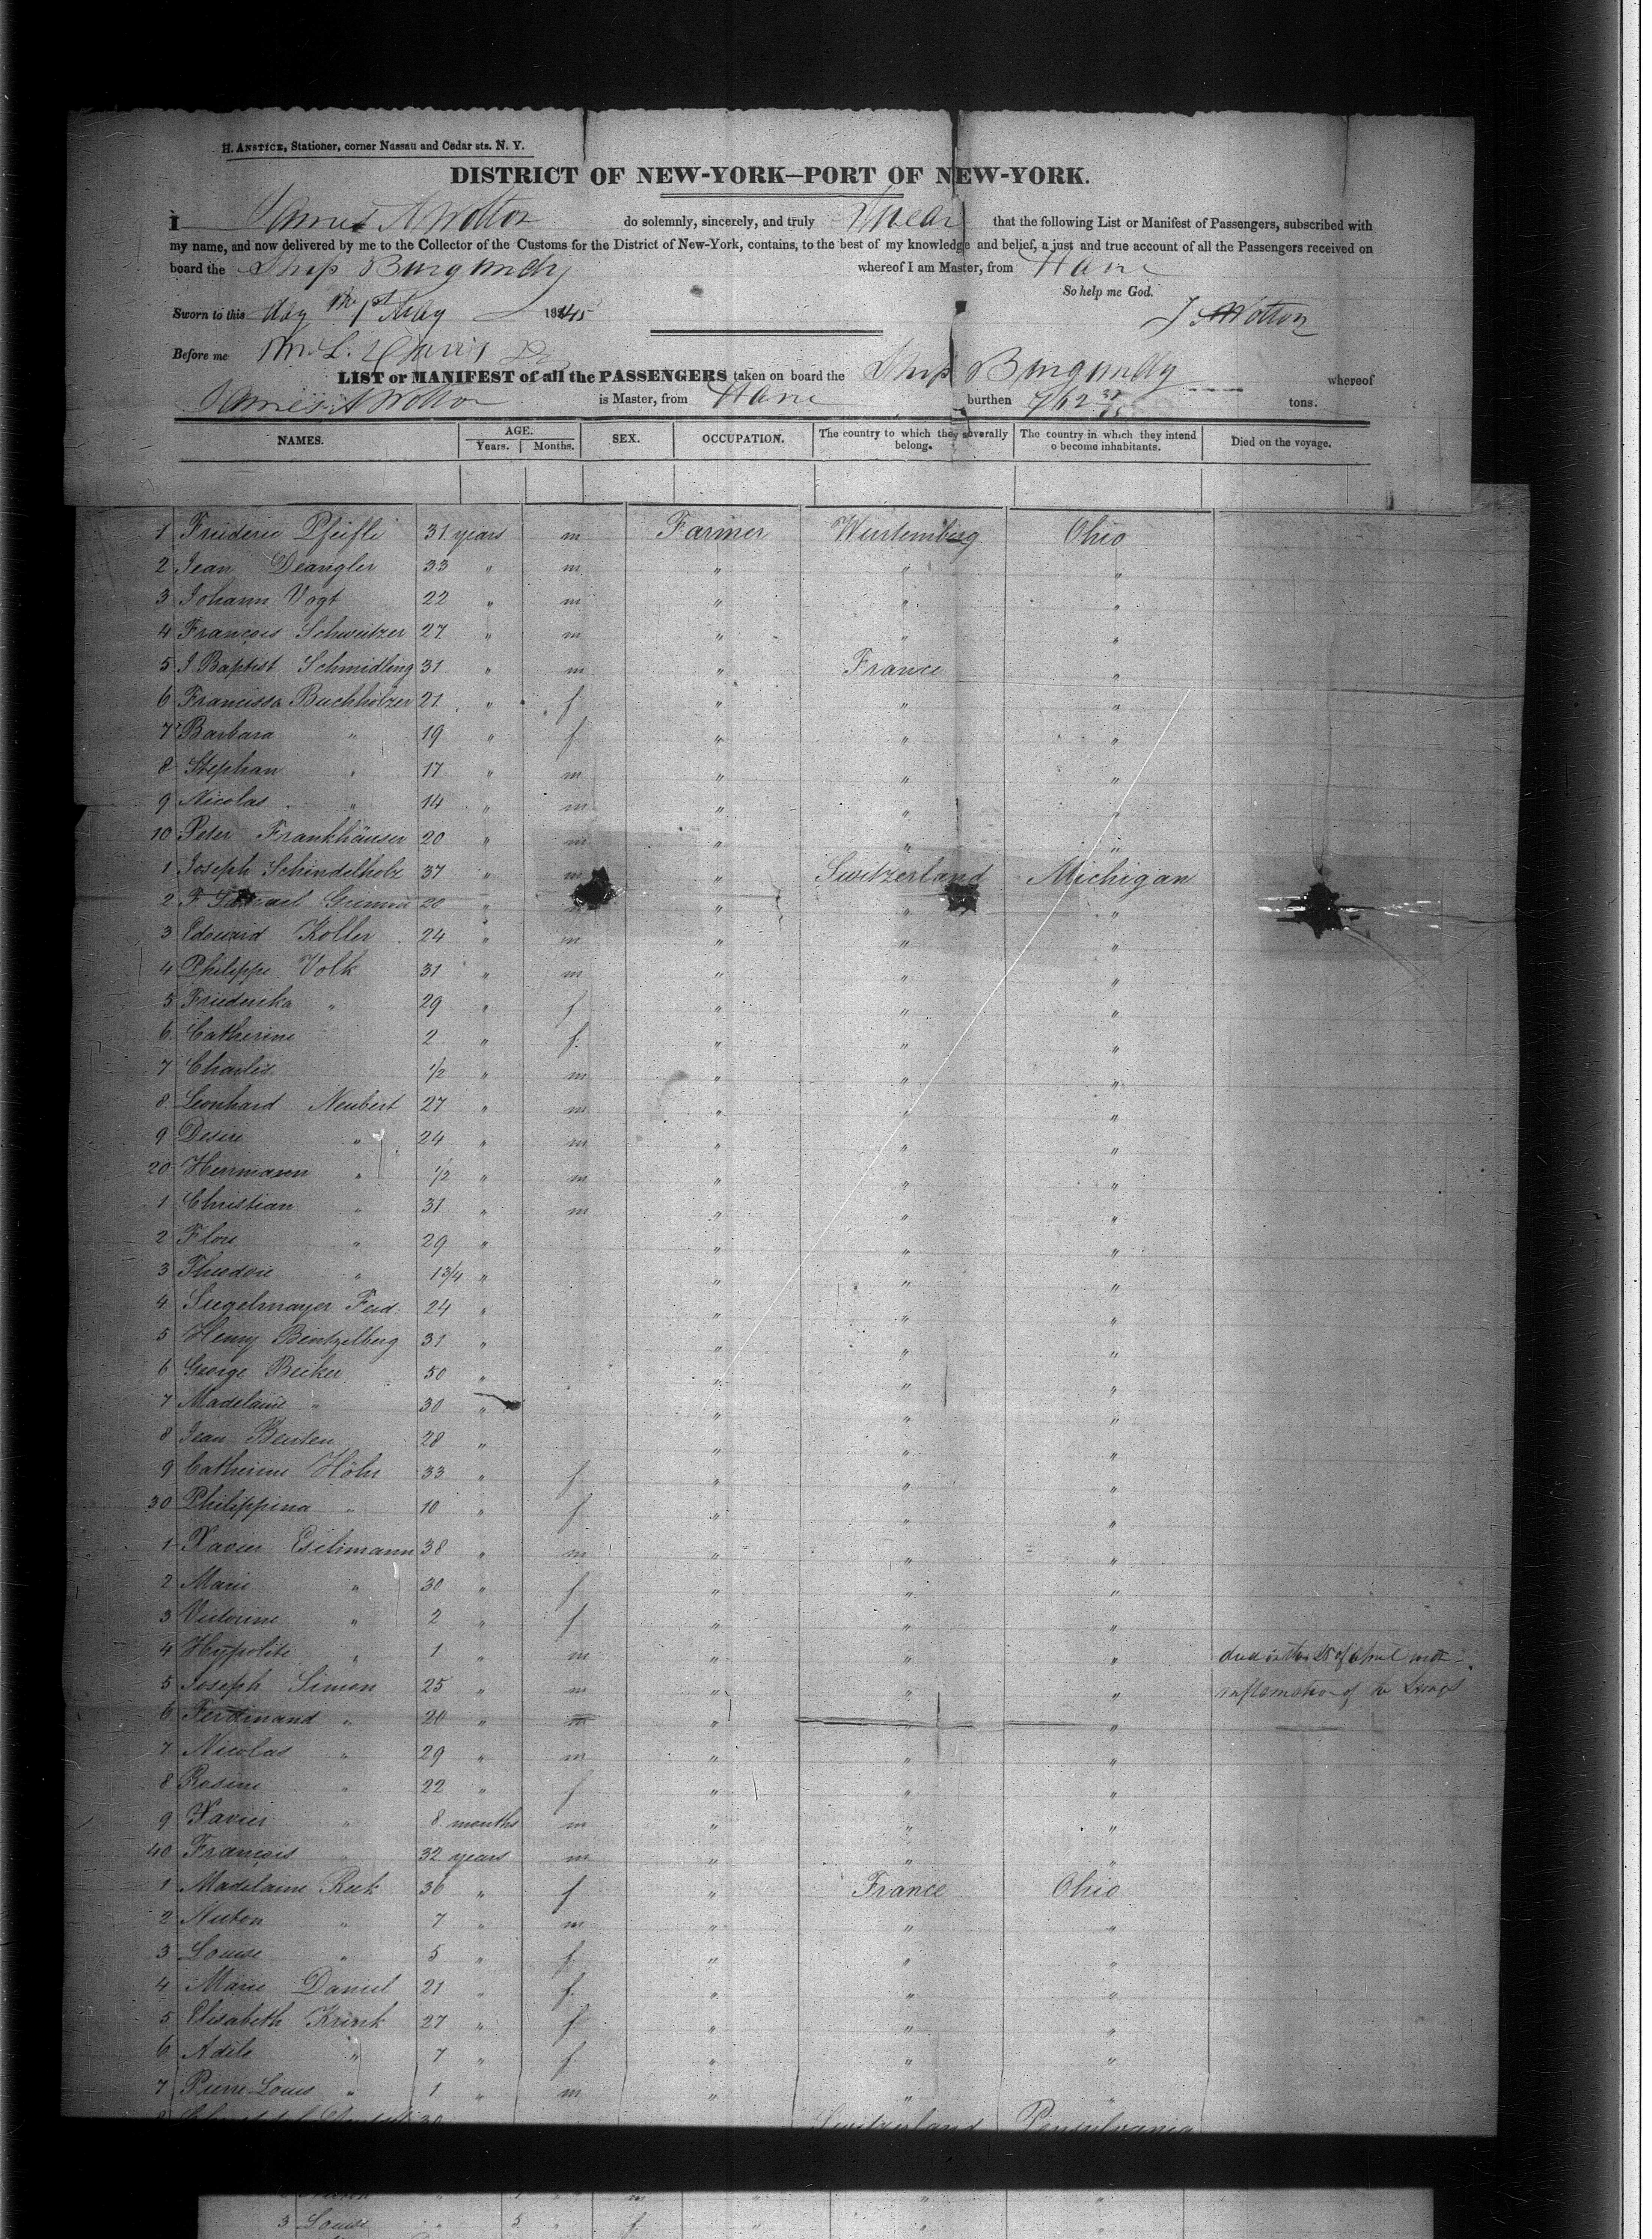 H. ANSTICE, Stationer, corner Nassau and Cedar sts. N. Y.
DISTRICT OF NEW-YORK—PORT OF NEW-YORK.
I James A Wotton do solemnly, sincerely, and truly Swear that the following List or Manifest of Passengers, subscribed with
my name, and now delivered by me to the Collector of the Customs for the District of New-York, contains, to the best of my knowledge and belief, a just and true account of all the Passengers received on
board the Ship Burgundy whereof I am Master, from Havre
So help me God.
Sworn to this day the 1st May 1845
J A Wotton
Before me
LIST or MANIFEST of all the PASSENGERS taken on board the Ship Burgundy whereof
James A Wotton is Master, from Havre burthen 762 tons.
NAMES. AGE. Years. Months. SEX. OCCUPATION. The country to which they severally belong. The country in which they intend o become inhabitants. Died on the voyage.
1 Friederic Pfeifle 31 years m Farmer Wurtemberg Ohio
2 Jean Deangler 33 " m " " "
3 Johann Vogt 22 " m " " "
4 François Schweitzer 27 " m " " "
5 J Baptist Schmidling 31 " m " France "
6 Francissa Buchholzer 21 " f " " "
7 Barbara " 19 " f " " "
8 Stephan " 17 " m " " "
9 Nicolas " 14 " m " " "
10 Peter Frankhäuser 20 " m " " "
1 Joseph Schindelholz 37 " m " Switzerland Michigan
2 F 20 " m " " "
3 Edouard Koller 24 " m " " "
4 Philippe Volk 31 " m " " "
5 Friederika " 29 " f " " "
6 Catherine 2 " f " " "
7 Charles 1/2 " m " " "
8 Leonhard Neubert 27 " m " " "
9 Desire " 24 " m " " "
20 Herrmann " 1/2 " m " " "
1 Christian " 31 " m " " "
2 Flore " 29 " " " "
3 Theodore " 1 3/4 " " " "
4 Siegelmayer Ferd. 24 " " " "
5 Henry Bentzelberg 31 " " " "
6 George Becker 50 " " " "
7 Madelaine " 30 " " " "
8 Jean 28 " " " "
9 Catherine Höhr 33 " f " " "
30 Philippina " 10 " f " " "
1 Xavier Eschmann 38 " m " " "
2 Marie " 30 " f " " "
3 Victorine " 2 " f " " "
4 Hypolite " 1 " m " " " died on the 25 of April with
5 Joseph Simon 25 " m " " " inflamation of the Lungs
6 Ferdinand " 20 " m " " "
7 Nicolas " 29 " m " " "
8 Rosine " 22 " f " " "
9 Xavier " 8 months m " " "
40 François " 32 years m " " "
1 Madelaine Reek 36 " f " France Ohio
2 " 7 " m " " "
3 Louise " 5 " f " " "
4 Marie Daniel 21 " f " " "
5 Elisabeth 27 " f " " "
6 Adele " 7 " f " " "
7 Pierre Louis " 1 " m " " "
8 30 Switzerland Pensylvania
3 Louise 5 " f " "